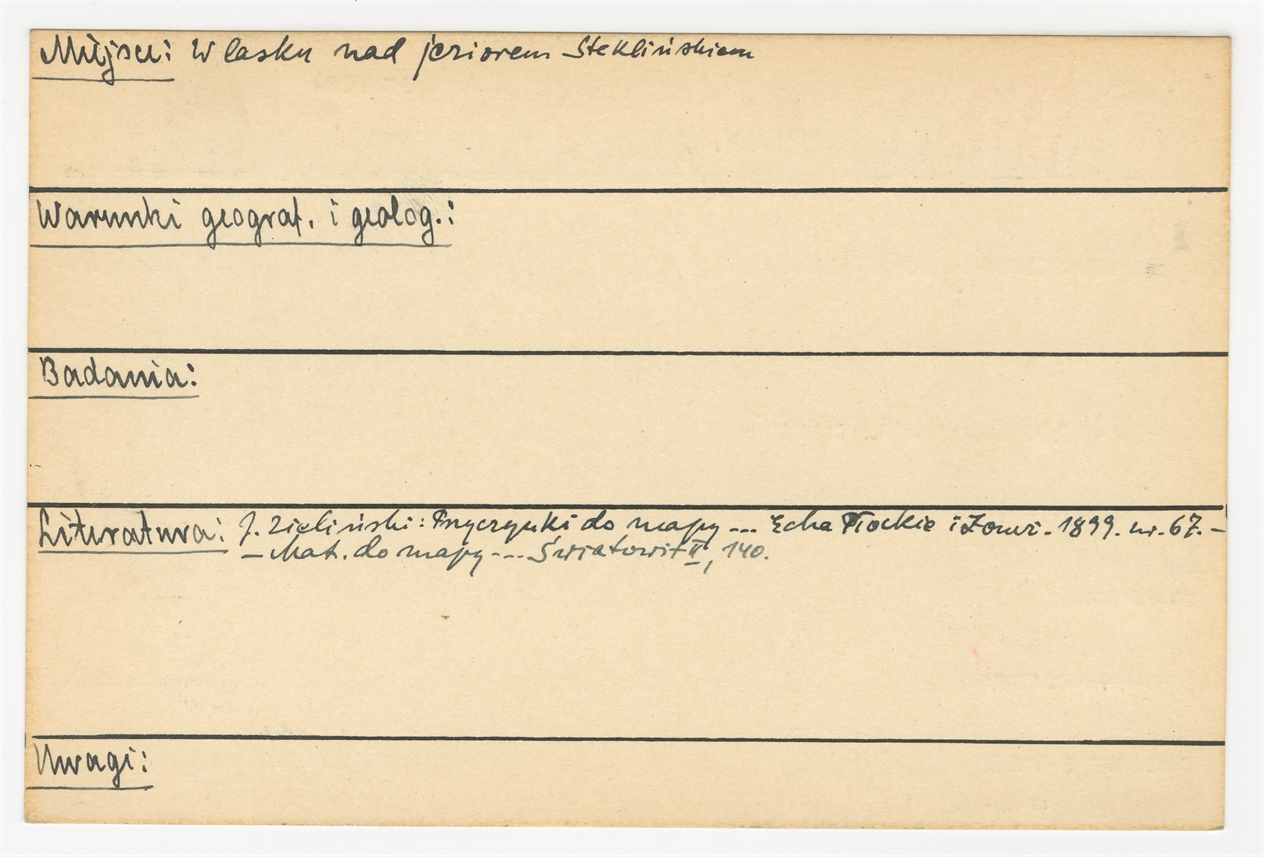 Miejsce: W lasku nad jeziorem Steklińskiem
Warunki geograf. i geolog.:
Badania:
Literatura: J. Zieliński: Przyczynki do mapy ... Echa Płockie i Łomż. 1899. nr. 67. –
– Mat. do mapy .... Światowit II, 140.
Uwagi: